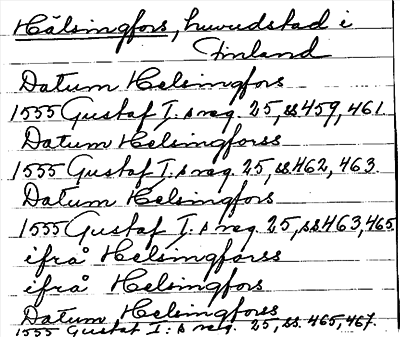 Hälsingfors, huvudstad i
Finland
Datum Helsingfors
1555 Gustaf I:s reg. 25, ss 459, 461.
Datum Helsingforss
1555 Gustaf I:s reg. 25, ss. 462, 463.
Datum Helsingfors
1555 Gustaf I:s reg. 25, ss 463, 465.
ifrå Helsingforss
ifrå Helsingfors
Datum Helsingforss
1555 Gustaf I:s reg. 25, ss. 465, 467.